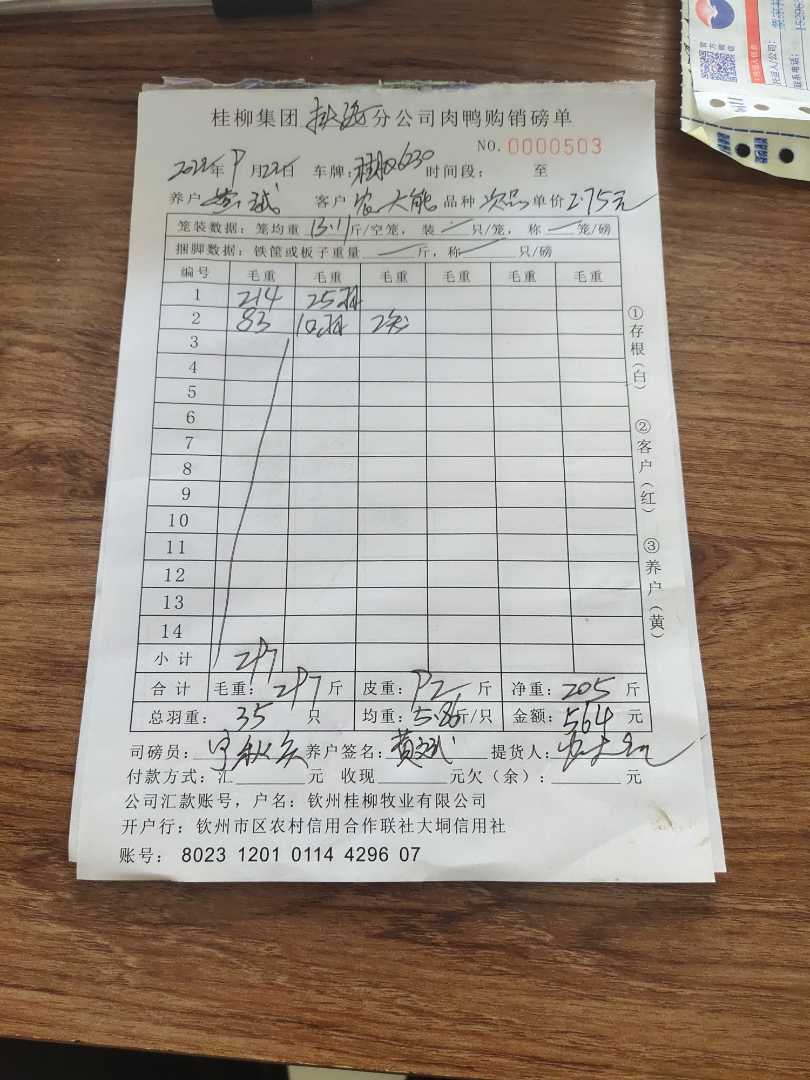 桂柳集团 分公司肉鸭购销磅单
NO. 0000503
2022年9月22日 车牌: 时间段: 至
养户 黄斌 客户 农大能 品种 次品 单价 2.75元
笼装数据: 笼均重 13.11斤/空笼, 装 — 只/笼, 称 — 笼/磅
捆脚数据: 铁筐或板子重量 — 斤, 称 — 只/磅
编号 毛重 毛重 毛重 毛重 毛重 毛重
1 214 25
2 83 10
3
4
5
6
7
8
9
10
11
12
13
14
小计 297
合计 毛重: 297斤 皮重: 92斤 净重: 205斤
总羽重: 35只 均重: 5.86斤/只 金额: 564元
司磅员: 养户签名: 黄斌 提货人:
付款方式: 汇 元 收现 元欠(余): 元
公司汇款账号, 户名: 钦州桂柳牧业有限公司
开户行: 钦州市区农村信用合作联社大垌信用社
账号: 8023 1201 0114 4296 07
①存根(白)
②客户(红)
③养户(黄)